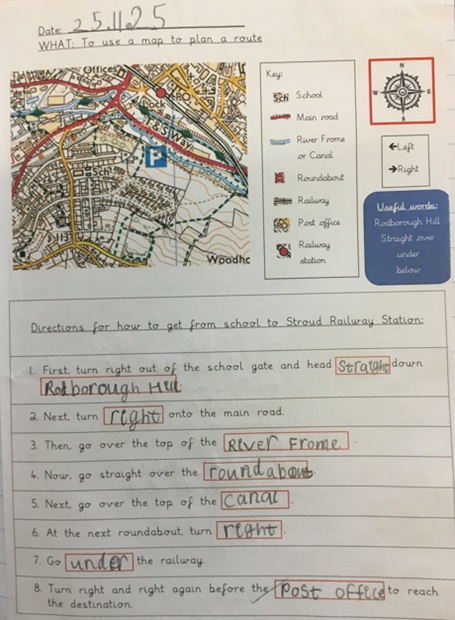 Date: 25.11.25
WHAT: To use a map to plan a route
Offices
Dock
PO
A&S Way
P
Sch
113
Woodhc
Key:
Sch School
Main road
River Frome
or Canal
Roundabout
Railway
PO Post office
Railway
station
N
W E
S
←Left
→Right
Useful words:
Rodborough Hill
Straight over
under
below
Directions for how to get from school to Stroud Railway Station:
1. First, turn right out of the school gate and head Straight down
Rodborough Hill.
2. Next, turn right onto the main road.
3. Then, go over the top of the River Frome.
4. Now, go straight over the roundabout.
5. Next, go over the top of the canal.
6. At the next roundabout, turn right.
7. Go under the railway.
8. Turn right and right again before the Post office to reach
the destination.